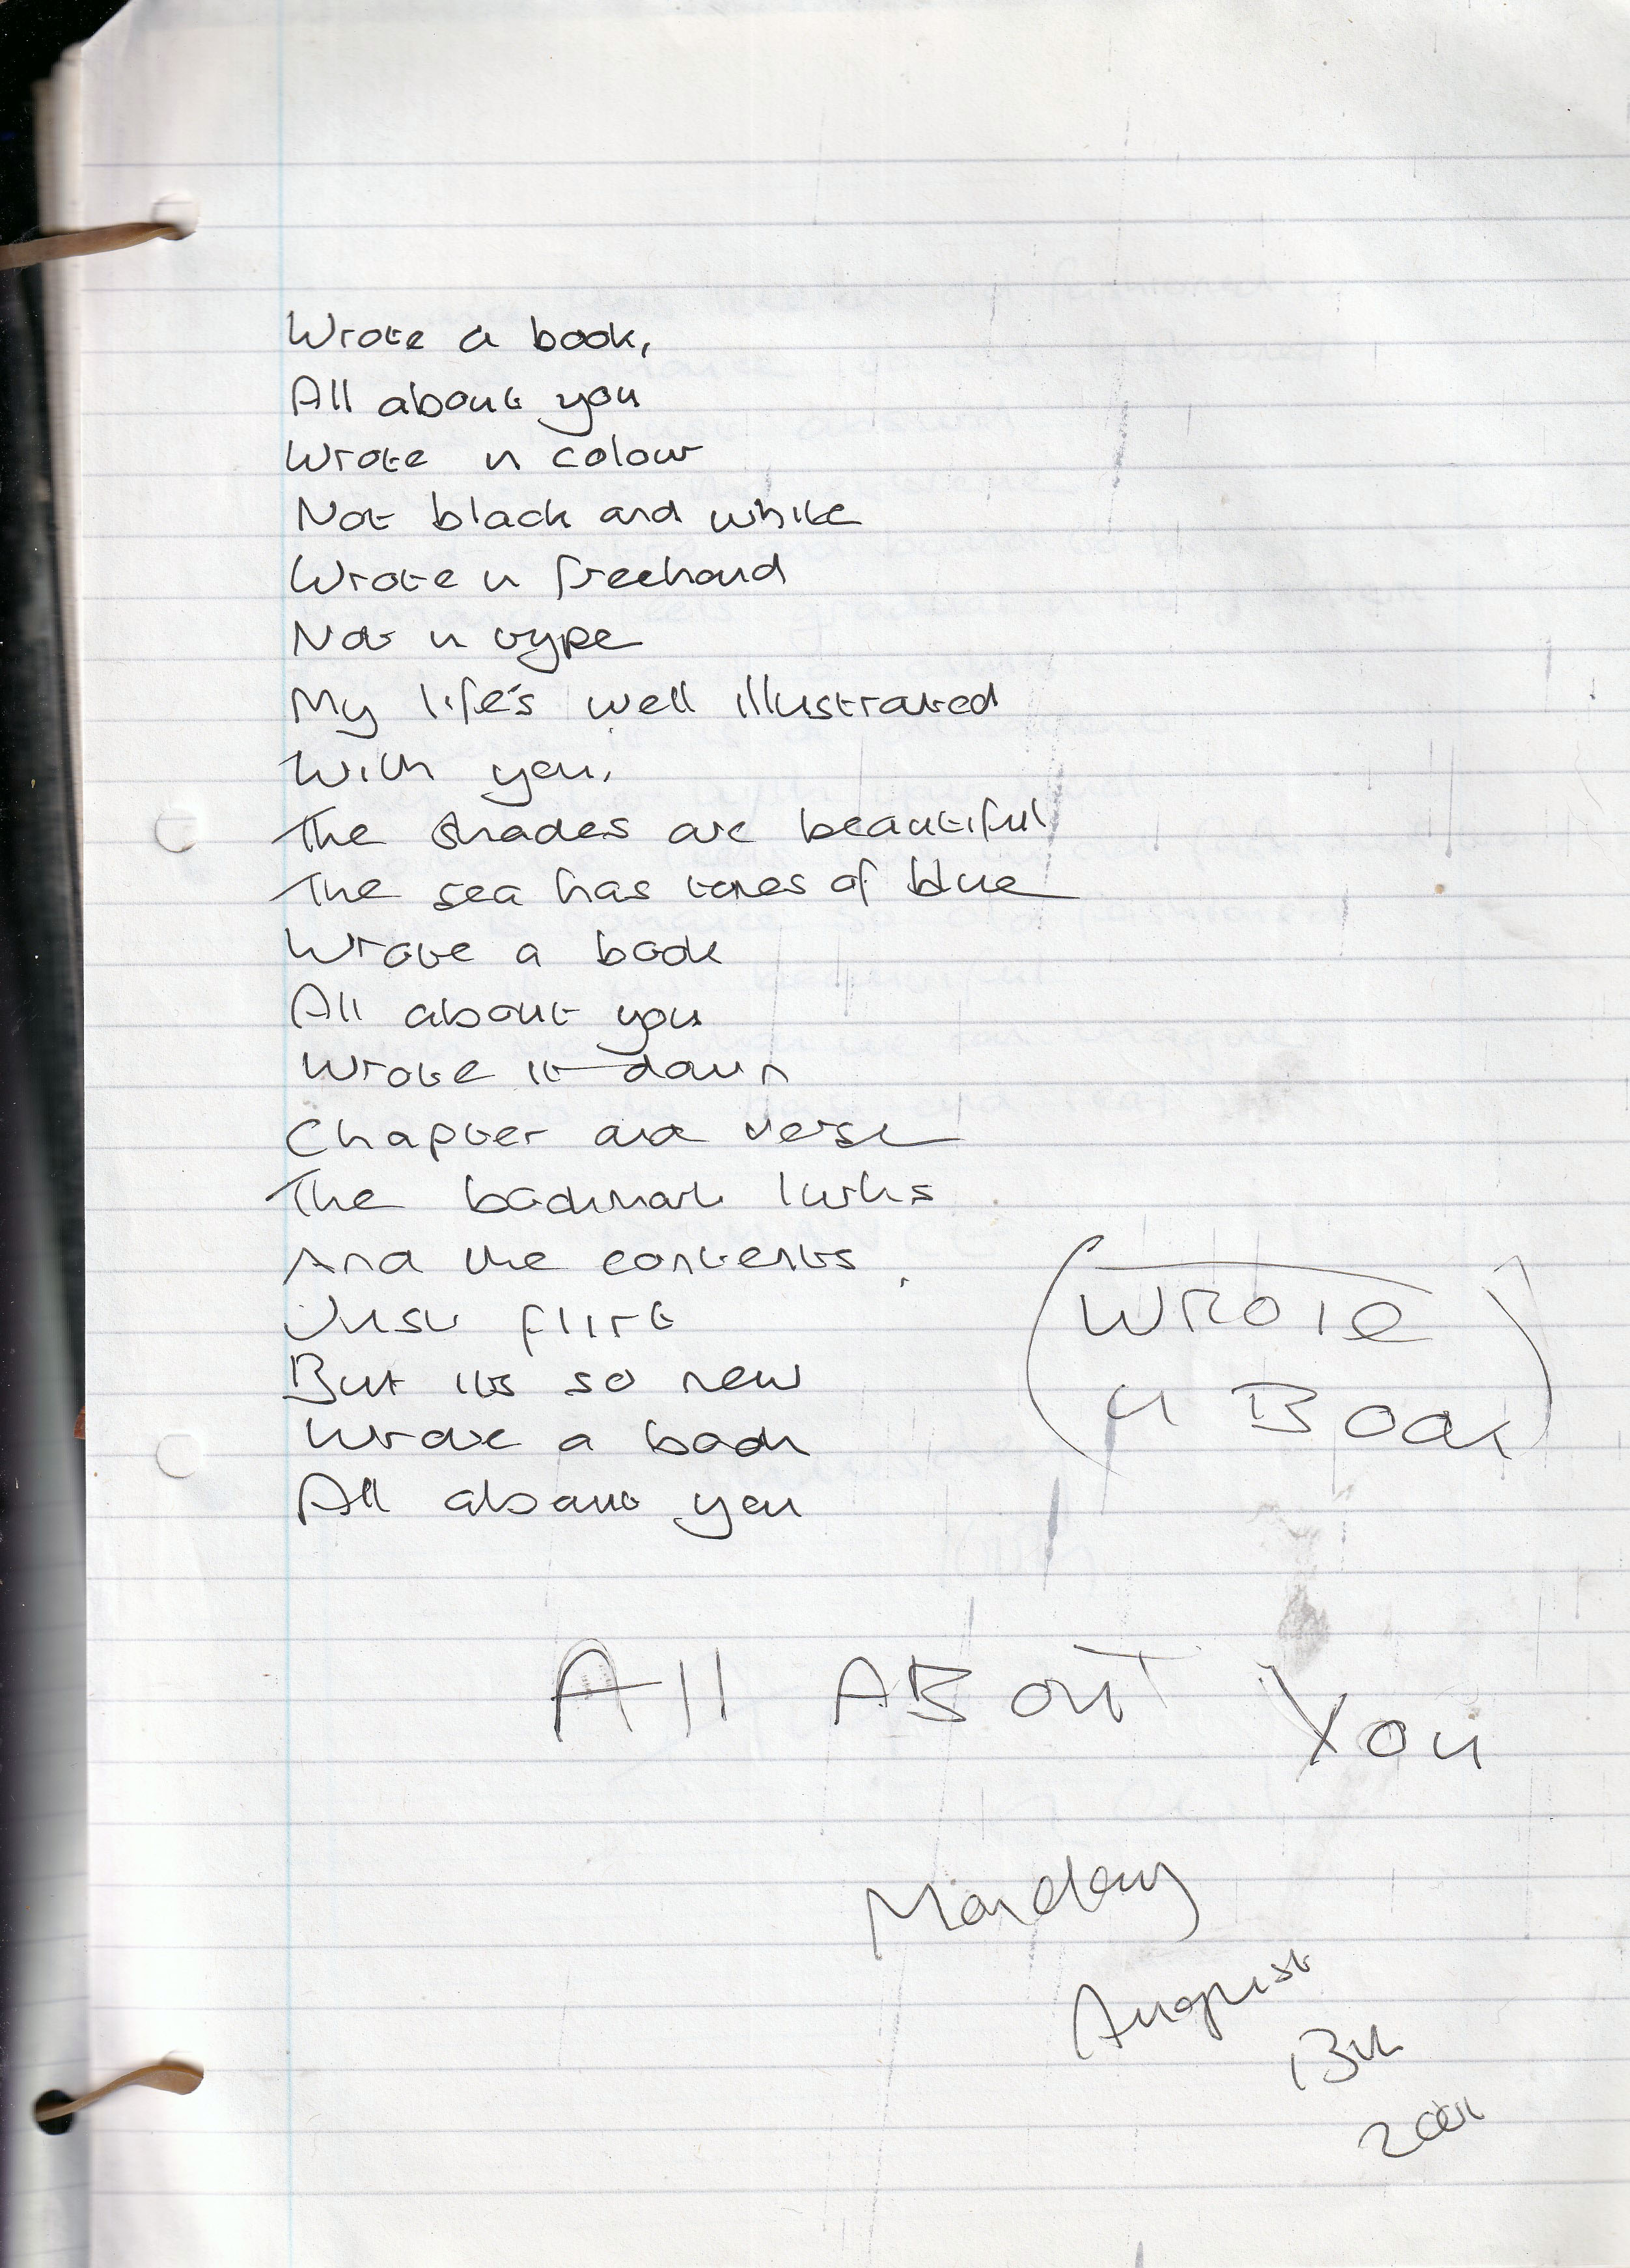 Wrote a book,
All about you
Wrote in colour
Not black and white
Wrote in freehand
Not in type
My life's well illustrated
With you.
The shades are beautiful
The sea has tones of blue
Wrote a book
All about you
Wrote it down
Chapter and verse
The bookmark lurks
And the contents
Just flirt
But its so new
Wrote a book
All about you
(WROTE
A BOOK)
All ABOUT You
Monday
August
13th
2001